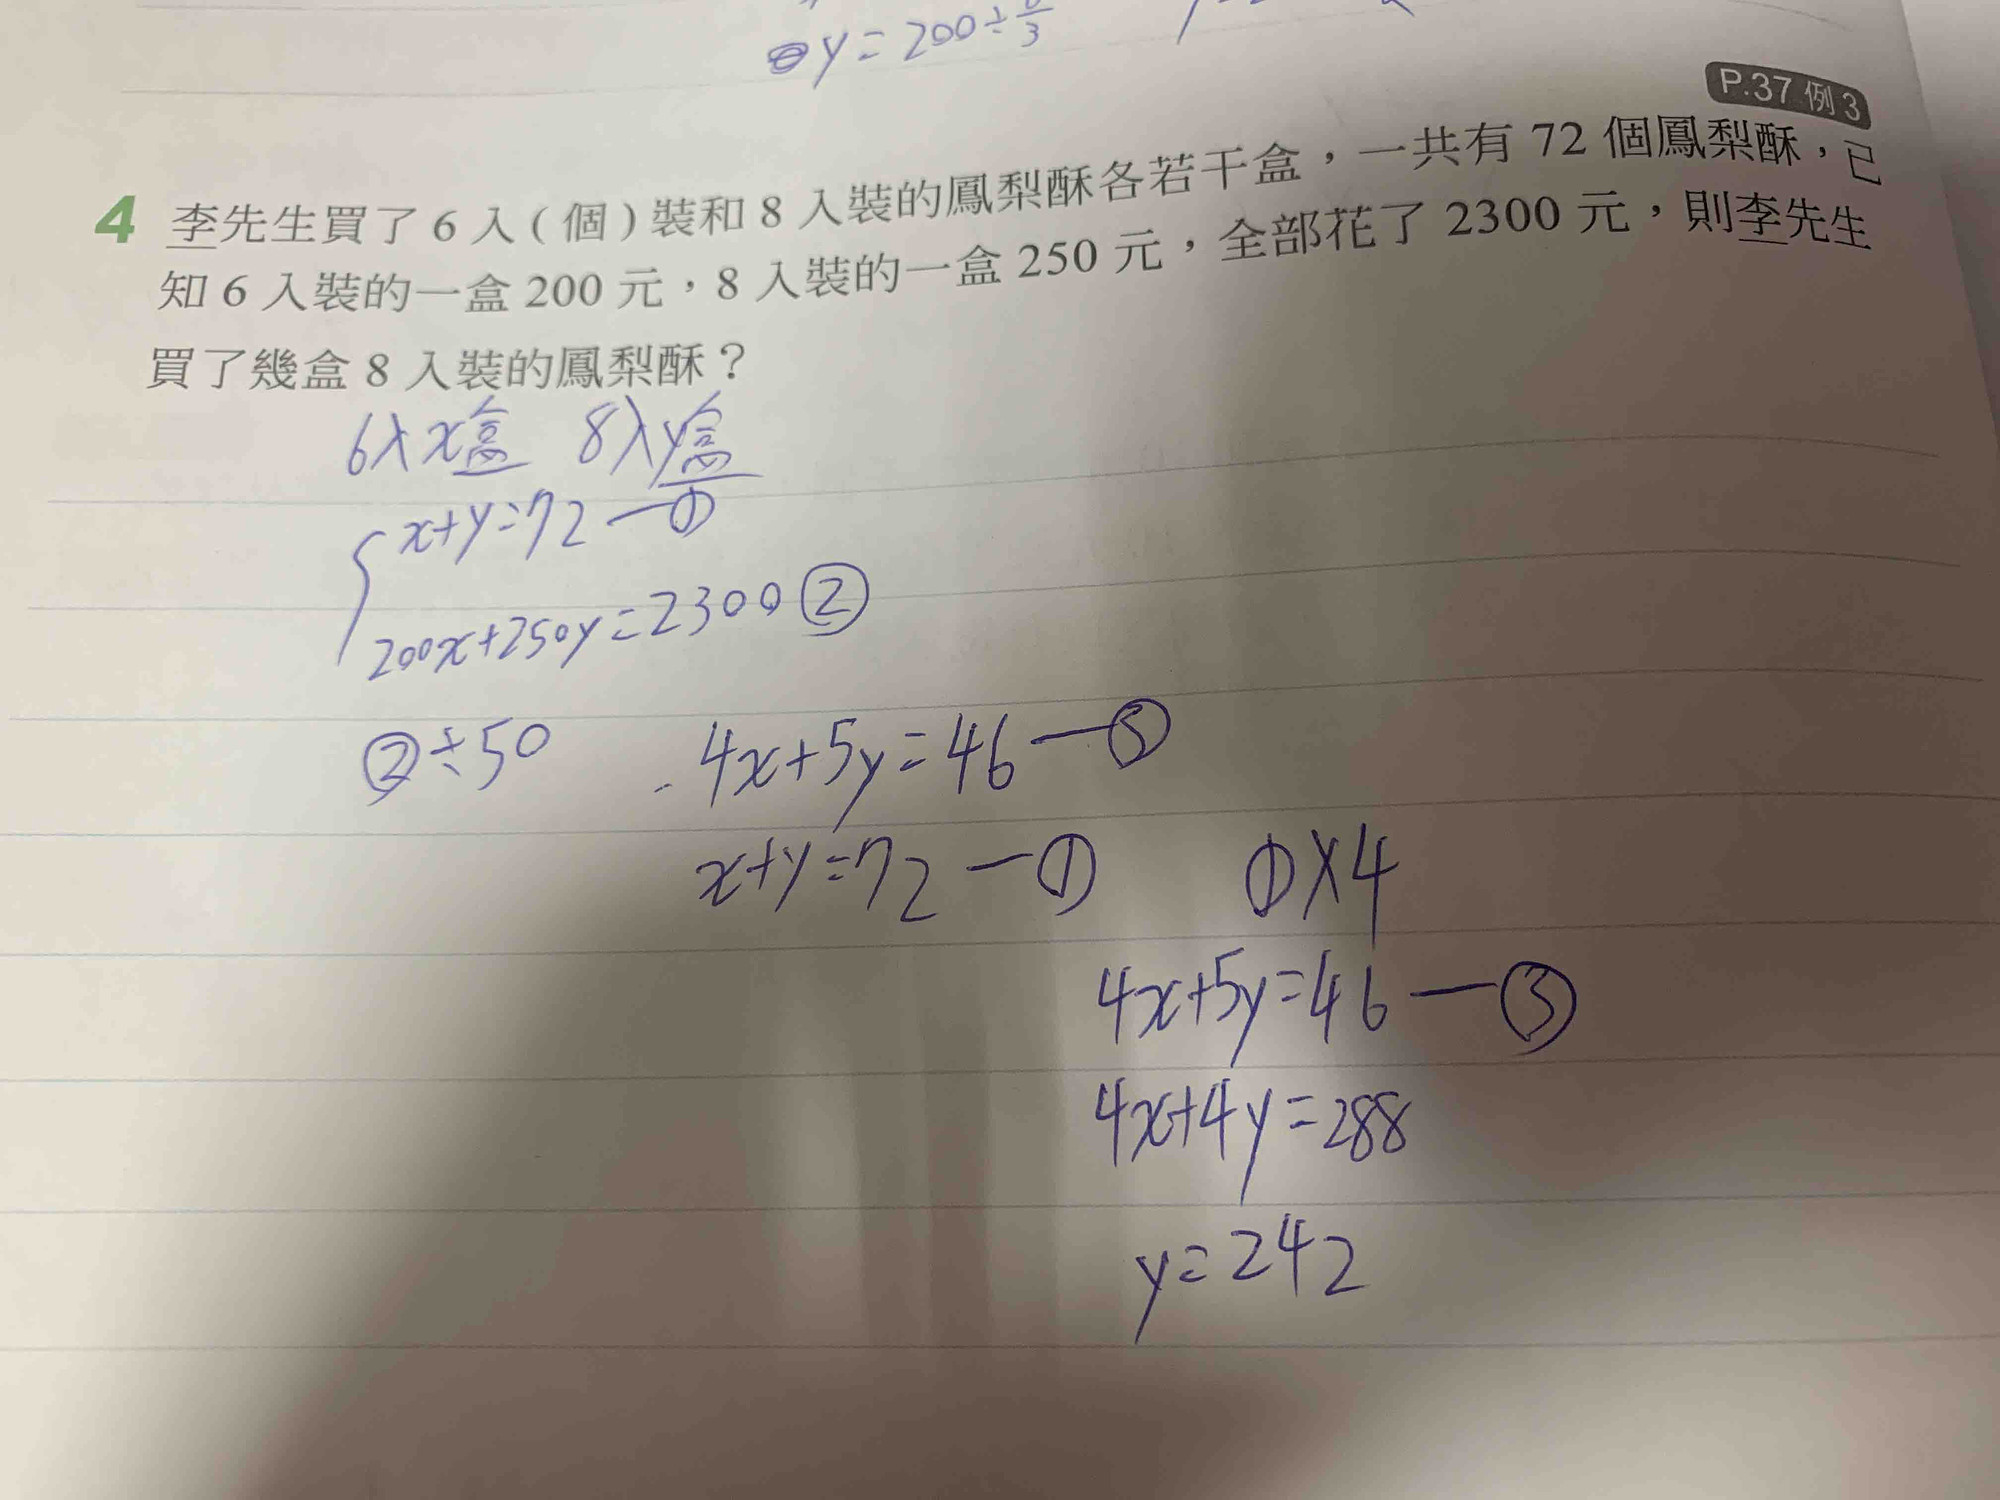 y = 200 ÷
3
P.37 例 3
4 李先生買了 6 入（個）裝和 8 入裝的鳳梨酥各若干盒，一共有 72 個鳳梨酥，已
知 6 入裝的一盒 200 元，8 入裝的一盒 250 元，全部花了 2300 元，則李先生
買了幾盒 8 入裝的鳳梨酥？
6入x盒 8入y盒
x+y=72 —①
200x+250y=2300 ②
②÷50 4x+5y=46 —③
x+y=72 —① ①×4
4x+5y=46 —③
4x+4y=288
y=242